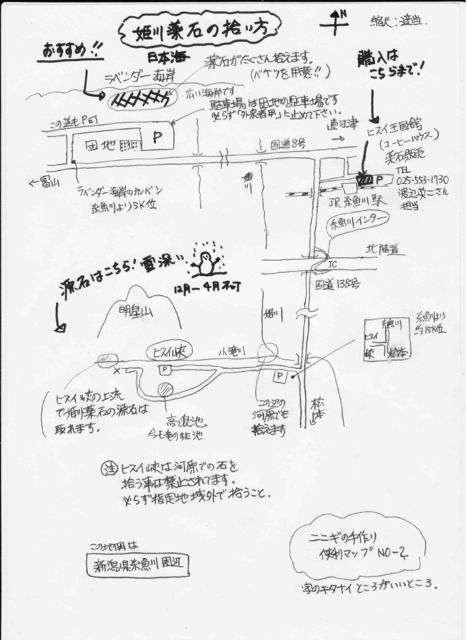 姫川薬石の拾い方
N
縮尺:適当
おすすめ!!
日本海
ラベンダー海岸
薬石がたくさん拾えます。
(バケツを用意!!)
広い海岸です
駐車場は団地の駐車場です
必らず「外来者用」に止めて下さい。
購入は
こちらまで!
この道を行く
団地
P
直江津
国道8号
ヒスイ王国館
(コーヒーハウス)
薬石販売
TEL
025-553-1730
渡辺英二さん
担当
P
JR糸魚川駅
富山
ラベンダー海岸のカンバン
糸魚川より5K位
姫川
糸魚川インター
北陸道
IC
国道138号
源石はこちら!雪深い
12月〜4月不可
明星山
ヒスイ峡
小滝川
姫川
P
P
糸魚川
ヒスイ
峡
松本
糸魚川より
約15K位
ヒスイ峡の上流
で姫川薬石の源石は
取れます。
高浪池
この辺の
河原でも
拾えます
松本
注 ヒスイ峡は河原での石を
拾う事は禁止されてます。
必らず指定地域外で拾うこと。
この地図は
新潟県糸魚川周辺
ニニギの手作り
便利マップNO-2
字のキタナイところがいいところ。